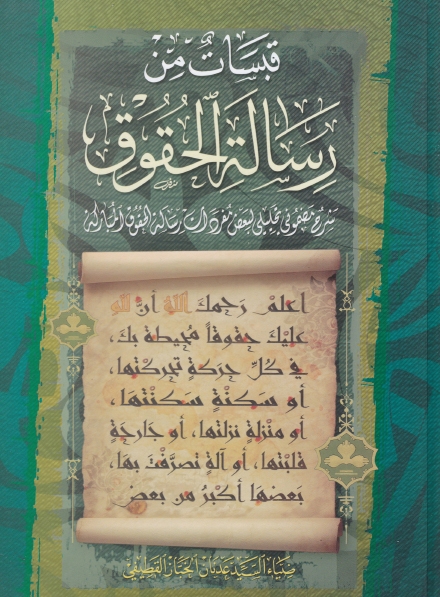 قبسات من
رسالة الحقوق
شرح مضموني تحليلي لبعض مفردات رسالة الحقوق المباركة
اعلم رحمك الله أن لله
عليك حقوقاً محيطة بك،
في كل حركة تحركتها،
أو سكنة سكنتها،
أو منزلة نزلتها، أو جارحة
قلبتها، أو آلة تصرفت بها،
بعضها أكبر من بعض
ضياء السيد عدنان الخباز القطيفي